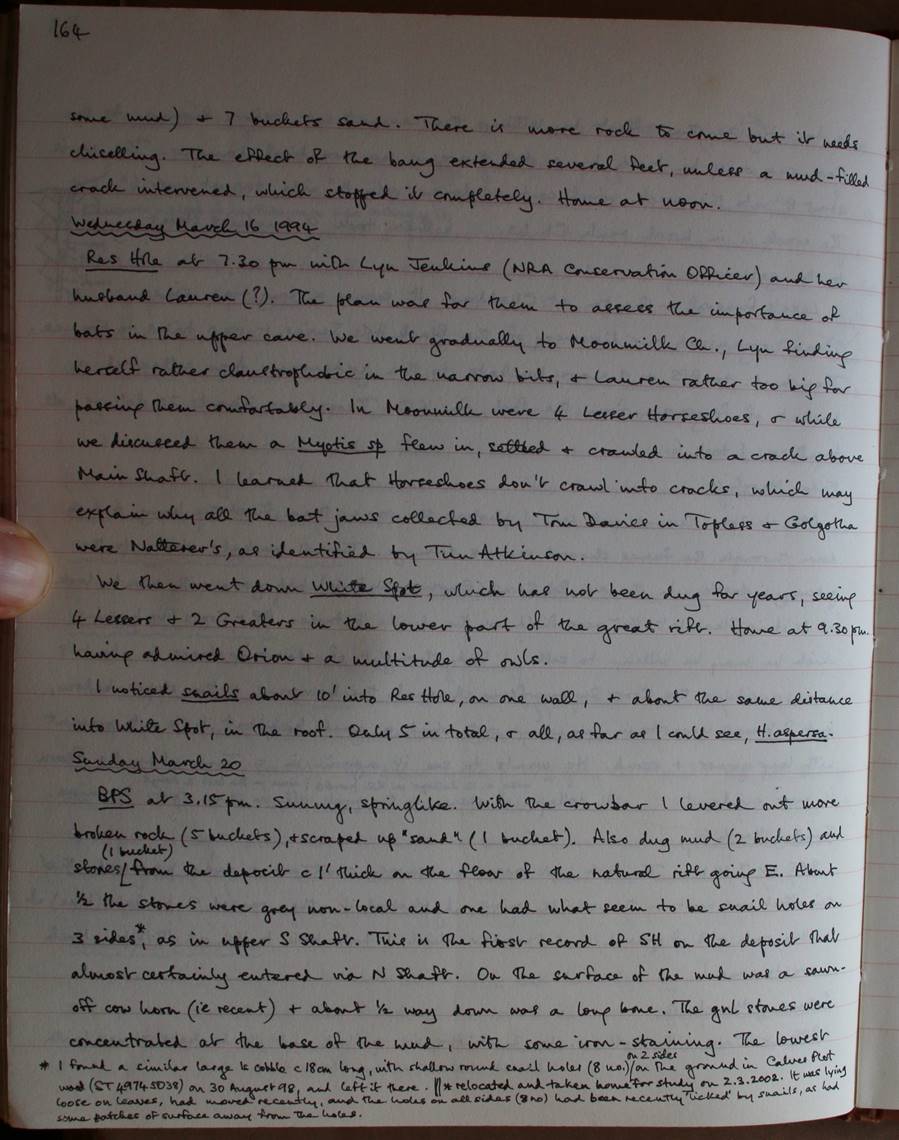 164
some mud) + 7 buckets sand. There is more rock to come but it needs
chiselling. The effect of the bang extended several feet, unless a mud-filled
crack intervened, which stopped it completely. Home at noon.
Wednesday March 16 1994
Res Hole at 7.30 pm with Lyn Jenkins (NRA Conservation Officer) and her
husband Lauren (?). The plan was for them to assess the importance of
bats in the upper cave. We went gradually to Moonmilk Ch., Lyn finding
herself rather claustrophobic in the narrow bits, + Lauren rather too big for
passing them comfortably. In Moonmilk were 4 Lesser Horseshoes, & while
we discussed them a Myotis sp flew in, settled + crawled into a crack above
Main Shaft. I learned that Horseshoes don't crawl into cracks, which may
explain why all the bat jaws collected by Tom Davies in Topless + Golgotha
were Natterer's, as identified by Tim Atkinson.
We then went down White Spot, which has not been dug for years, seeing
4 Lessers + 2 Greaters in the lower part of the great rift. Home at 9.30 pm.
having admired Orion + a multitude of owls.
I noticed snails about 10' into Res Hole, on one wall, + about the same distance
into White Spot, in the roof. Only 5 in total, & all, as far as I could see, H. aspersa.
Sunday March 20
BPS at 3.15 pm. Sunny, springlike. With the crowbar I levered out more
broken rock (5 buckets), + scraped up "sand" (1 bucket). Also dug mud (2 buckets) and
(1 bucket)
stones/from the deposit c 1' thick on the floor of the natural rift going E. About
½ the stones were grey non-local and one had what seem to be snail holes on
3 sides*, as in upper S Shaft. This is the first record of SH on the deposit that
almost certainly entered via N Shaft. On the surface of the mud was a sawn-
off cow horn (ie recent) + about ½ way down was a long bone. The gnl stones were
concentrated at the base of the mud, with some iron-staining. The lowest
on 2 sides
* I found a similar large ls cobble c 18cm long, with shallow round snail holes (8 no.)/on the ground in Calves Plot
wood (ST 49745038) on 30 August 98, and left it there. // * relocated and taken home for study on 2.3.2002. It was lying
loose on leaves, had moved recently, and the holes on all sides (8 no) had been recently "licked" by snails, as had
some patches of surface away from the holes.